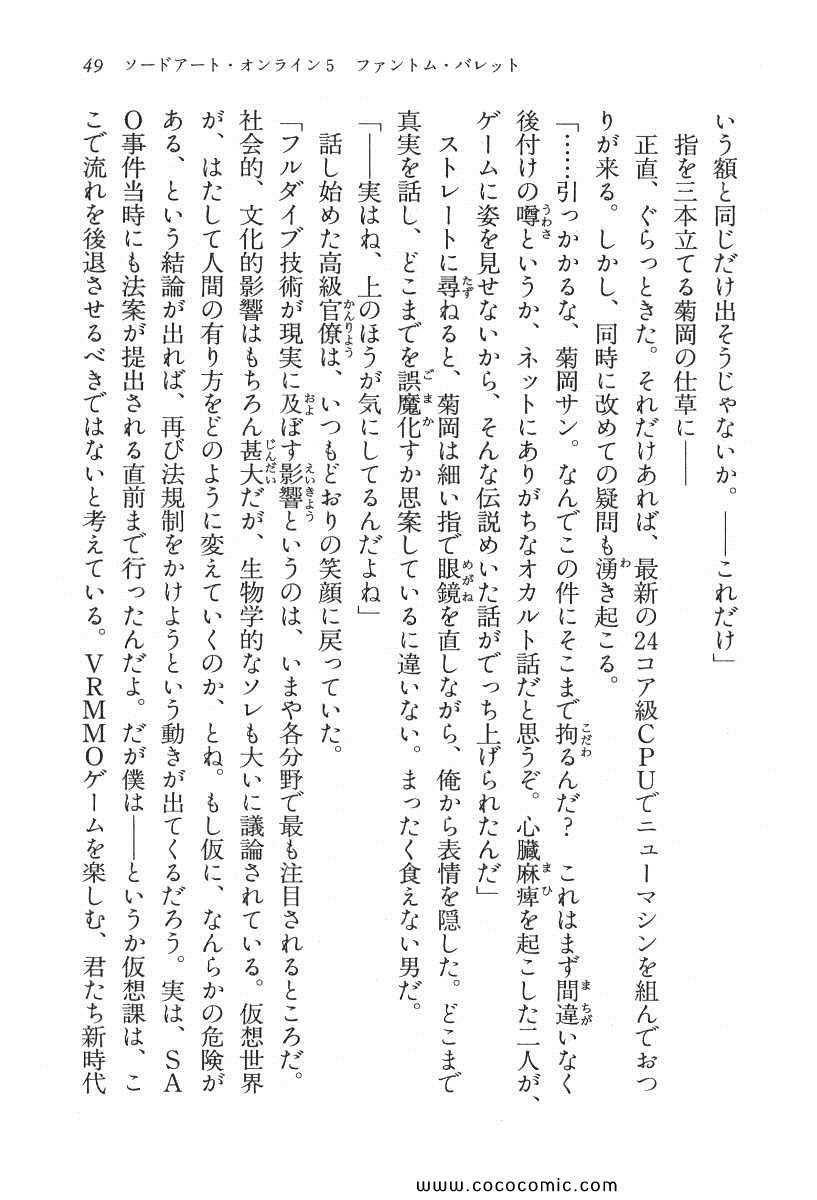 49 ソードアート・オンライン5 ファントム・バレット
いう額と同じだけ出そうじゃないか。――これだけ」
指を三本立てる菊岡の仕草に――
正直、ぐらっときた。それだけあれば、最新の24コア級CPUでニューマシンを組んでおつ
りが来る。しかし、同時に改めての疑問も湧き起こる。
「……引っかかるな、菊岡サン。なんでこの件にそこまで拘るんだ？　これはまず間違いなく
後付けの噂というか、ネットにありがちなオカルト話だと思うぞ。心臓麻痺を起こした二人が、
ゲームに姿を見せないから、そんな伝説めいた話がでっち上げられたんだ」
ストレートに尋ねると、菊岡は細い指で眼鏡を直しながら、俺から表情を隠した。どこまで
真実を話し、どこまでを誤魔化すか思案しているに違いない。まったく食えない男だ。
「――実はね、上のほうが気にしてるんだよね」
話し始めた高級官僚は、いつもどおりの笑顔に戻っていた。
「フルダイブ技術が現実に及ぼす影響というのは、いまや各分野で最も注目されるところだ。
社会的、文化的影響はもちろん甚大だが、生物学的なソレも大いに議論されている。仮想世界
が、はたして人間の有り方をどのように変えていくのか、とね。もし仮に、なんらかの危険が
ある、という結論が出れば、再び法規制をかけようという動きが出てくるだろう。実は、SA
O事件当時にも法案が提出される直前まで行ったんだよ。だが僕は――というか仮想課は、こ
こで流れを後退させるべきではないと考えている。VRMMOゲームを楽しむ、君たち新時代
www.cococomic.com